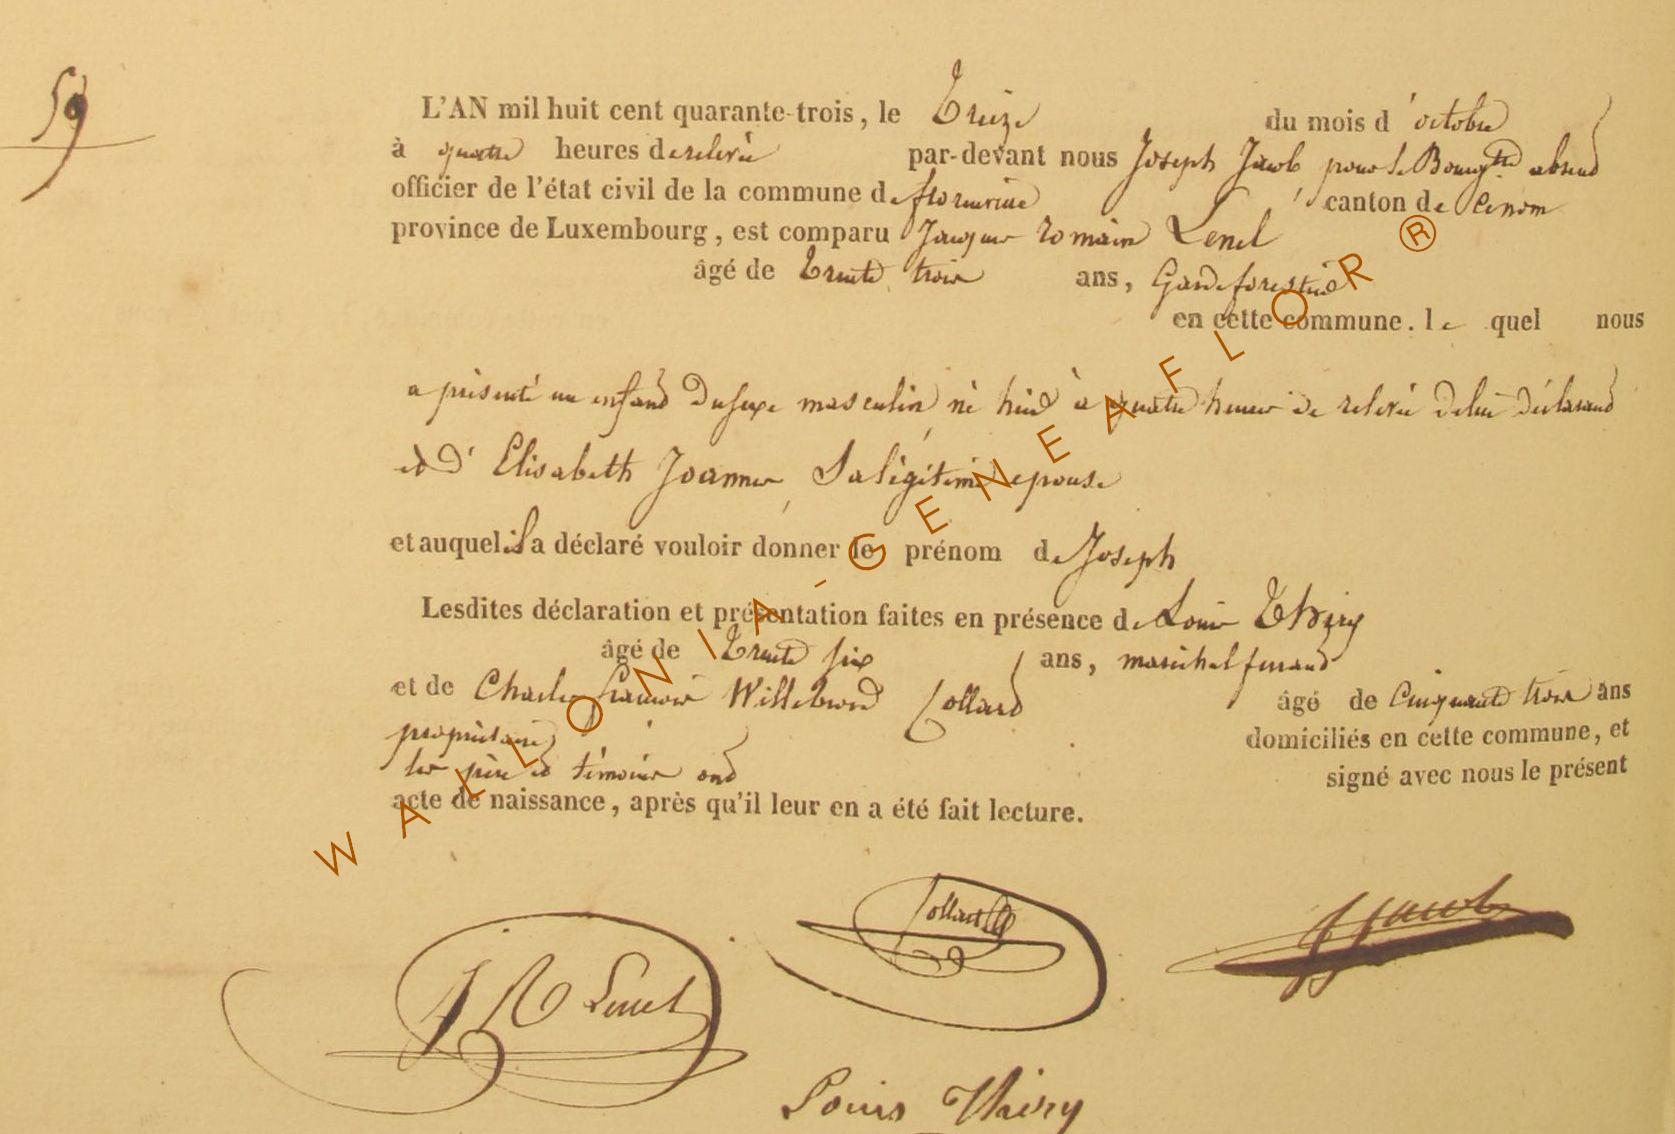 59
L'AN mil huit cent quarante-trois, le Treize du mois d'octobre
à quatre heures de relevée par-devant nous Joseph Jacob pour le Bourgtre absend
officier de l'état civil de la commune de florenville canton de
province de Luxembourg, est comparu Jacques romain Lenel
âgé de trente trois ans, Garde forestier
en cette commune. le quel nous
a présenté un enfand du sexe masculin, né hier à quatre heures de relevée de lui déclarand
et d'Elisabeth Joannes, Sa légitime epouse
et auquel il a déclaré vouloir donner le prénom de Joseph
Lesdites déclaration et présentation faites en présence de Louis Thiry
âgé de Trente six ans, maréchal ferrand
et de Charles francois Willebrord Collard âgé de Cinquante trois ans
propriétaire domiciliés en cette commune, et
les père et témoins ond signé avec nous le présent
acte de naissance, après qu'il leur en a été fait lecture.
Collard
J Jacob
J R Lenel
Louis Thiry
WALLONIA-GENEAFLOR ®